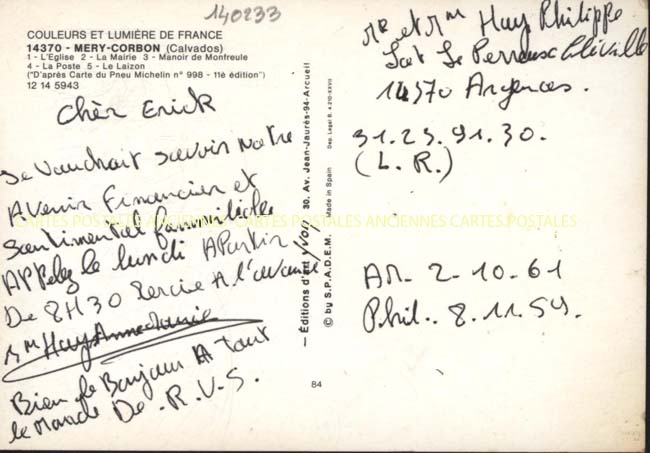 140233
COULEURS ET LUMIÈRE DE FRANCE
14370 - MERY-CORBON (Calvados)
1 - L'Eglise 2 - La Mairie 3 - Manoir de Montreule
4 - La Poste 5 - Le Laizon
("D'après Carte du Pneu Michelin n° 998 - 11è édition")
12 14 5943
Chèr Erick
Je Vaudrait savoir Notre
Avenir Financier et
Sentimental familiale
Appelez le lundi A Partir
De 8H30 Mercie A l'avance
Mm Hay Anne-Marie
Bien le Bonjour A tout
le Monde De R.V.S.
— Éditions d'art YVON, 30, Av. Jean-Jaurès-94-Arcueil
© by S.P.A.D.E.M. Made in Spain Dep. Legal B. 4.210-XXVII
84
Mr et Mm Hay Philippe
Le Perreux Cléville
14370 Argences.
31.23.91.30.
(L.R.)
AM. 2-10-61
Phil.. 8.11.59.
CARTES POSTALES ANCIENNES CARTES POSTALES ANCIENNES CARTES POSTALES